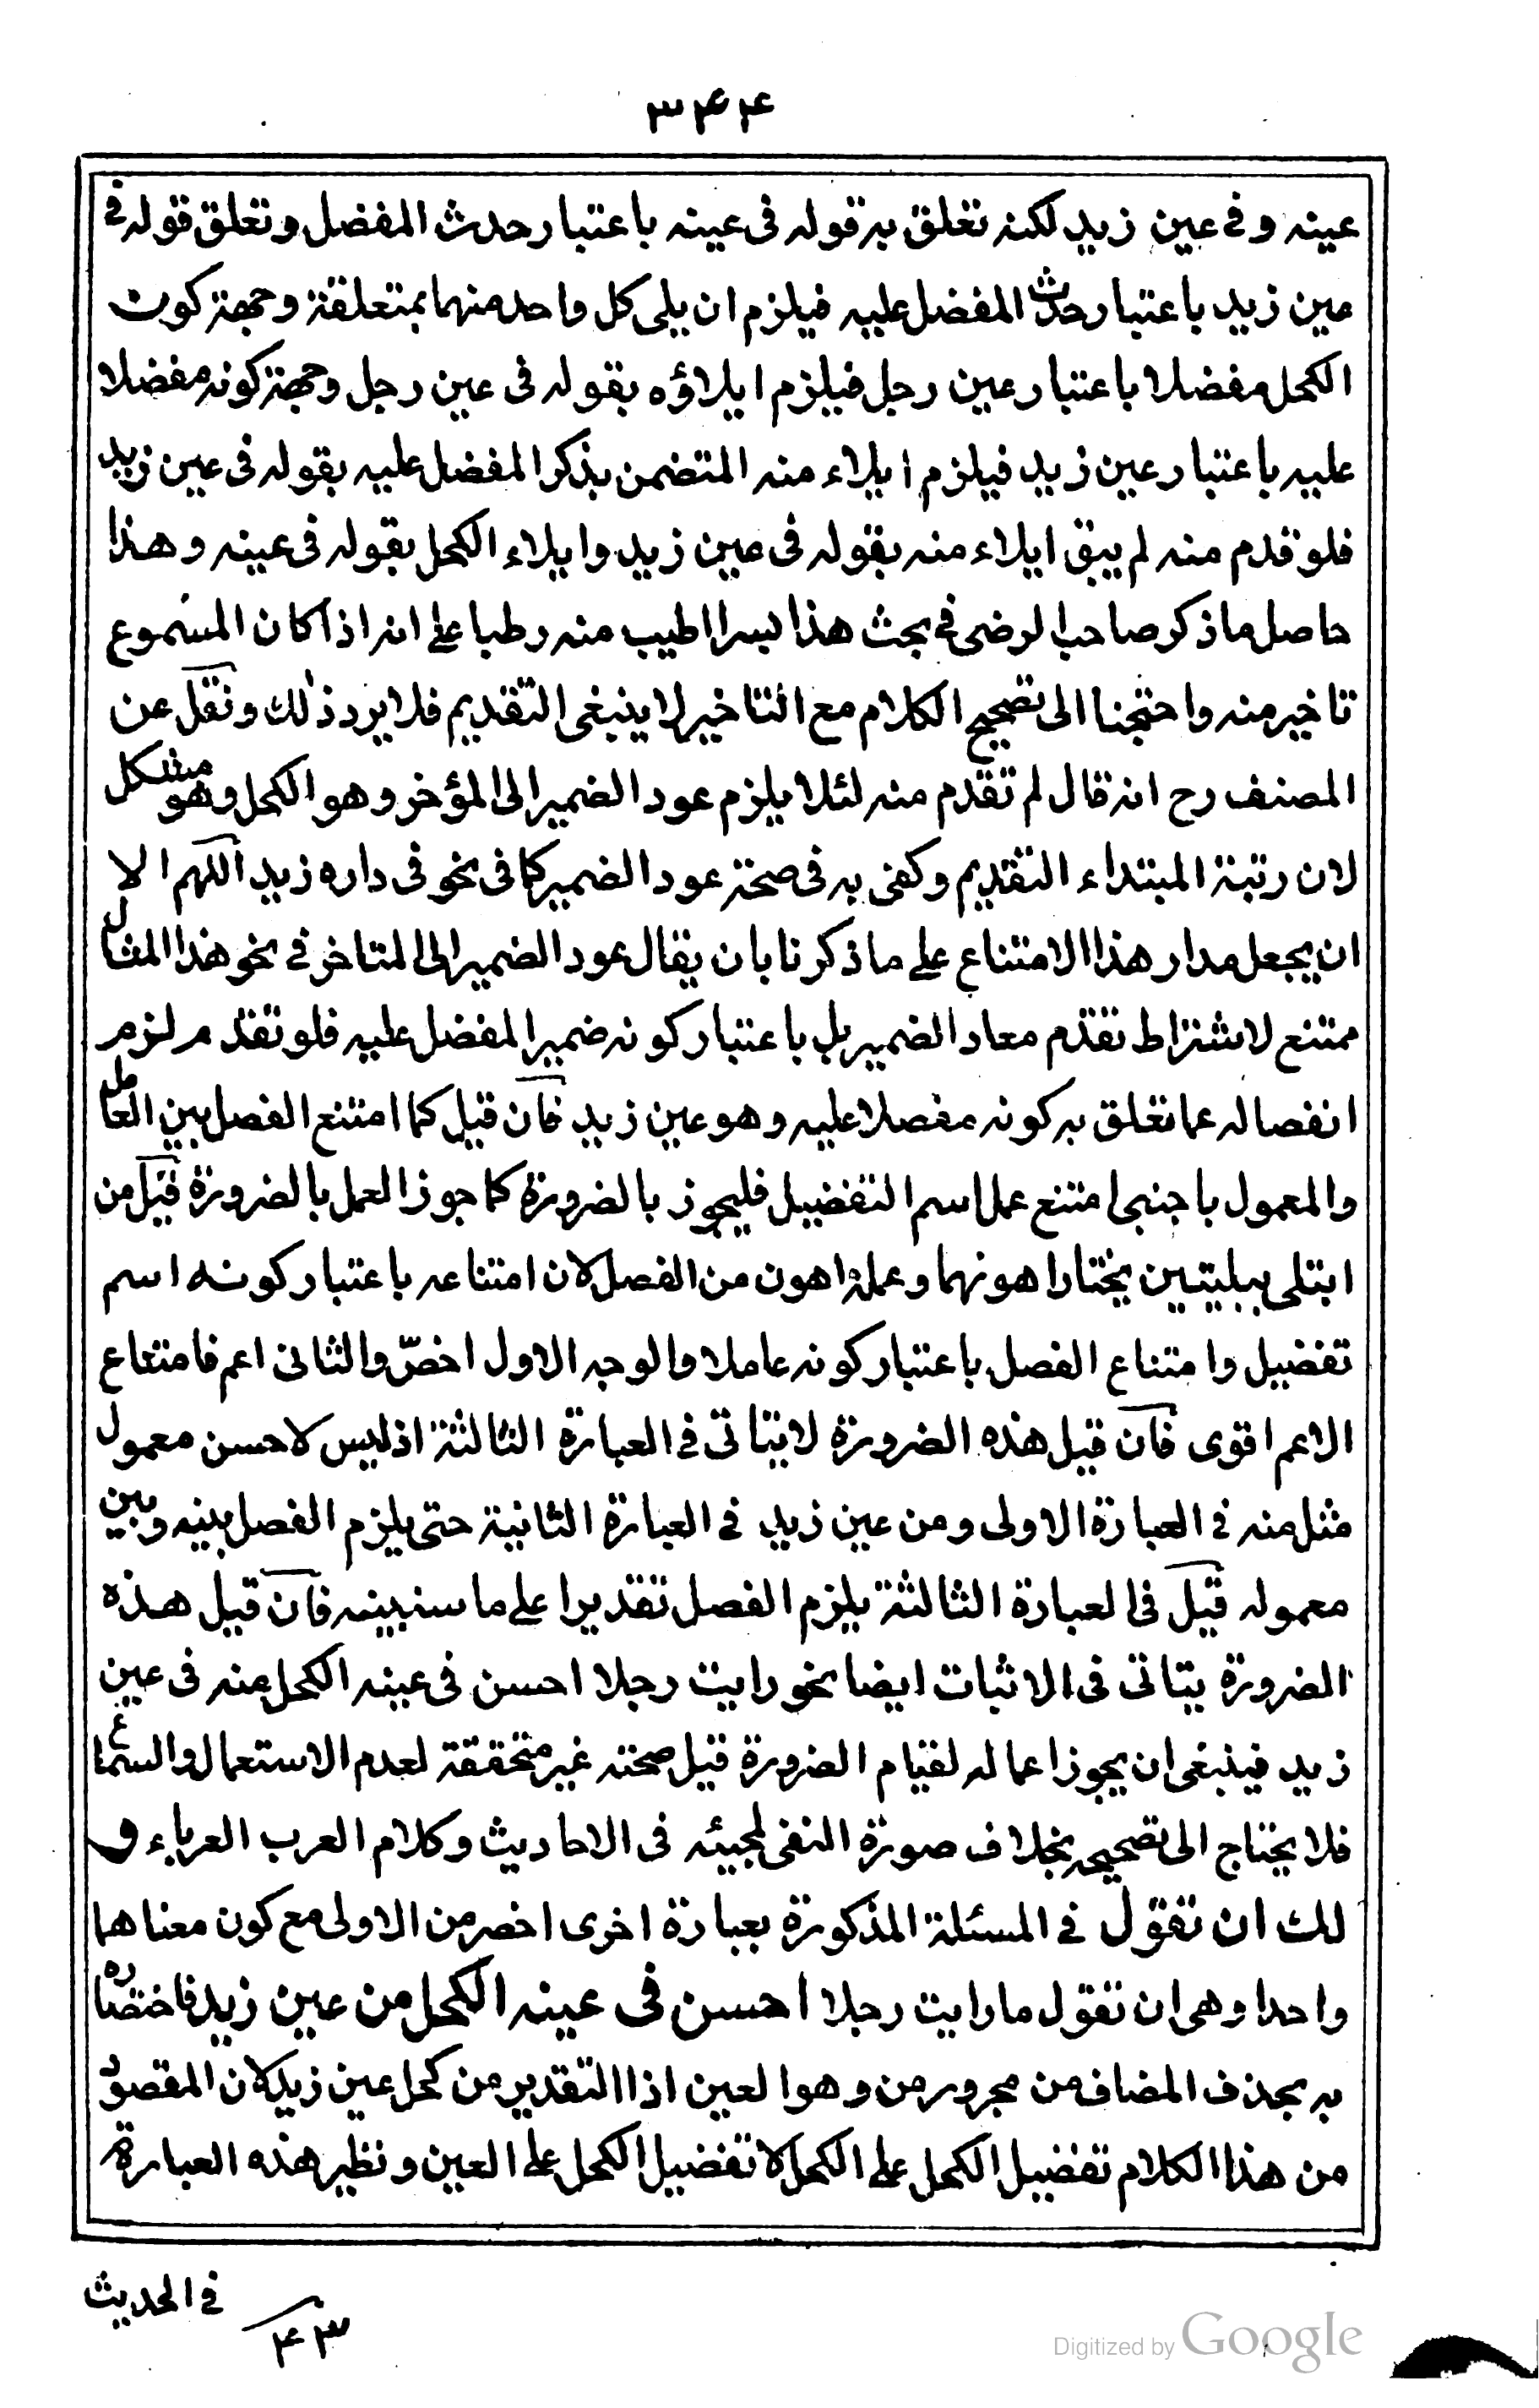 ۳۴۴
عينه و فى عين زيد لكنه تعلق به قوله فى عينه باعتبار حدث المفضل و تعلق قوله فى
عين زيد باعتبار حدث المفضل عليه فيلزم ان يلى كل واحد منهما بمتعلقة وجهة كون
الكحل مفضلا باعتبار عين رجل فيلزم ايلاؤه بقوله فى عين رجل وجهة كونه مفضلا
عليه باعتبار عين زيد فيلزم ايلاء منه المتضمن بذكر المفضل عليه بقوله فى عين زيد
فلو قدم منه لم يبق ايلاء منه بقوله فى عين زيد وايلاء الكحل بقوله فى عينه وهذا
حاصل ما ذكر صاحب الرضى فى بحث هذا بسرا اطيب منه رطبا على انه اذا كان المسموع
تاخير منه واحتجنا الى تصحيح الكلام مع التاخير لا ينبغى التقديم فلا يرد ذلك ونقل عن
المصنف رح انه قال لم تقدم منه لئلا يلزم عود الضمير الى المؤخر وهو الكحل وهو مشكل
لان رتبة المبتداء التقديم وكفى به فى صحة عود الضمير كما فى نحو فى داره زيد اللهم الا
ان يجعل مدار هذا الامتناع على ما ذكرنا بان يقال عود الضمير الى المتاخر فى نحو هذا المثال
ممتنع لا شتراط تقدم معاد الضمير بل باعتبار كونه ضمير المفضل عليه فلو تقدم لزم
انفصاله عما تعلق به كونه مفصلا عليه وهو عين زيد فان قيل كما امتنع الفصل بين العامل
والمعمول باجنبى امتنع عمل اسم التفضيل فليجوز بالضرورة كما جوز العمل بالضرورة قيل من
ابتلى ببليتين يختار اهونهما وعمله اهون من الفصل لان امتناعه باعتبار كونه اسم
تفضيل وامتناع الفصل باعتبار كونه عاملا والوجه الاول اخصّ والثانى اعم فامتناع
الاعم اقوى فان قيل هذه الضرورة لا يتاتى فى العبارة الثالثة اذ ليس لاحسن معمول
مثل منه فى العبارة الاولى ومن عين زيد فى العبارة الثانية حتى يلزم الفصل بينه وبين
معموله قيل فى العبارة الثالثة يلزم الفصل تقديرا على ما سنبينه فان قيل هذه
الضرورة يتاتى فى الاثبات ايضا نحو رايت رجلا احسن فى عينه الكحل منه فى عين
زيد فينبغى ان يجوز اعماله لقيام الضرورة قيل صحته غير متحققة لعدم الاستعمال والسماع
فلا يحتاج الى تصحيحه بخلاف صورة النفى لمجيئه فى الاحاديث وكلام العرب العرباء و
لك ان تقول فى المسئلة المذكورة بعبارة اخرى اخصر من الاولى مع كون معناهما
واحدا وهى ان تقول ما رايت رجلا احسن فى عينه الكحل من عين زيد فاختصاره
به بحذف المضاف من مجرور من وهو العين اذا التقدير من كحل عين زيد لان المقصود
من هذا الكلام تفضيل الكحل على الكحل لا تفضيل الكحل على العين ونظير هذه العبارة
فى الحديث
۴۳
Digitized by Google